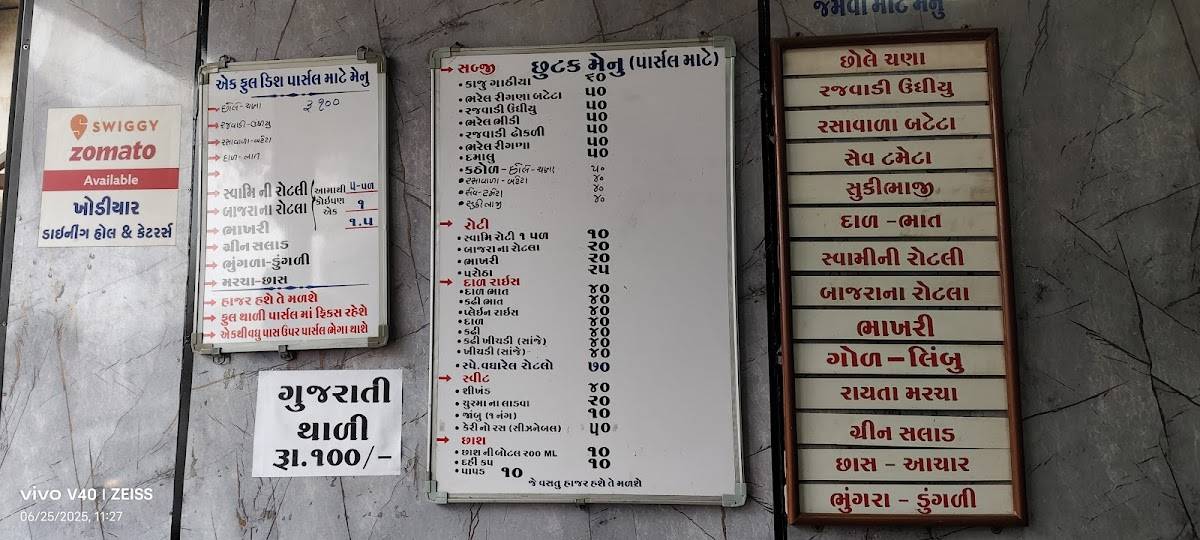 જમવા માટે મેનુ
SWIGGY
zomato
Available
ખોડીયાર
ડાઇનીંગ હોલ & કેટરર્સ
એક ફુલ ડિશ પાર્સલ માટે મેનુ
છોલે-ચણા રૂ ૧૦૦
રજવાડી-ઉંધીયુ
રસાવાળા-બટેટા
દાળ-ભાત
સ્વામિની રોટલી
બાજરાના રોટલા
ભાખરી
આમાથી કોઇપણ એક
૫-પળ
૧
૧.૫
ગ્રીન સલાડ
ભુંગળા-ડુંગળી
મરચા-છાસ
હાજર હશે તે મળશે
ફુલ થાળી પાર્સલ માં ફિકસ રહેશે
એકથી વધુ પાસ ઉપર પાર્સલ ભેગા થાશે
ગુજરાતી
થાળી
રૂા.૧૦૦/-
છુટક મેનુ (પાર્સલ માટે)
સબ્જી
કાજુ ગાઠીયા ૬૦
ભરેલ રીગણા બટેટા ૫૦
રજવાડી ઉંધીયુ ૫૦
ભરેલ ભીડી ૫૦
રજવાડી ઢોકળી ૫૦
ભરેલ રીગણા ૫૦
દમાલુ ૫૦
કઠોળ-છોલે-ચણા ૫૦
રસાવાળા-બટેટા ૪૦
સેવ-ટમેટા ૪૦
સુકીભાજી ૪૦
રોટી
સ્વામિ રોટી ૧ પળ ૧૦
બાજરા ના રોટલા ૨૦
ભાખરી ૨૦
પરોઠા ૨૫
દાળ રાઇસ
દાળ ભાત ૪૦
કઢી ભાત ૪૦
પ્લેઇન રાઇસ ૪૦
દાળ ૪૦
કઢી ૪૦
કઢી ખીચડી (સાંજે) ૪૦
ખીચડી (સાંજે)- ૪૦
સ્પે.વઘારેલ રોટલો ૭૦
સ્વીટ
શીખંડ ૪૦
ચુરમા ના લાડવા ૨૦
જાંબુ (૧ નંગ) ૧૦
કેરી નો રસ (સીઝનેબલ) ૫૦
છાશ
છાશ ની બોટલ ૨૦૦ ML ૧૦
દહીં કપ ૧૦
પાપડ ૧૦
જે વસતુ હાજર હશે તે મળશે
છોલે ચણા
રજવાડી ઉંધીયુ
રસાવાળા બટેટા
સેવ ટમેટા
સુકીભાજી
દાળ -ભાત
સ્વામીની રોટલી
બાજરાના રોટલા
ભાખરી
ગોળ - લિંબુ
રાયતા મરચા
ગ્રીન સલાડ
છાસ - આચાર
ભુંગરા - ડુંગળી
vivo V40 | ZEISS
06/25/2025, 11:27